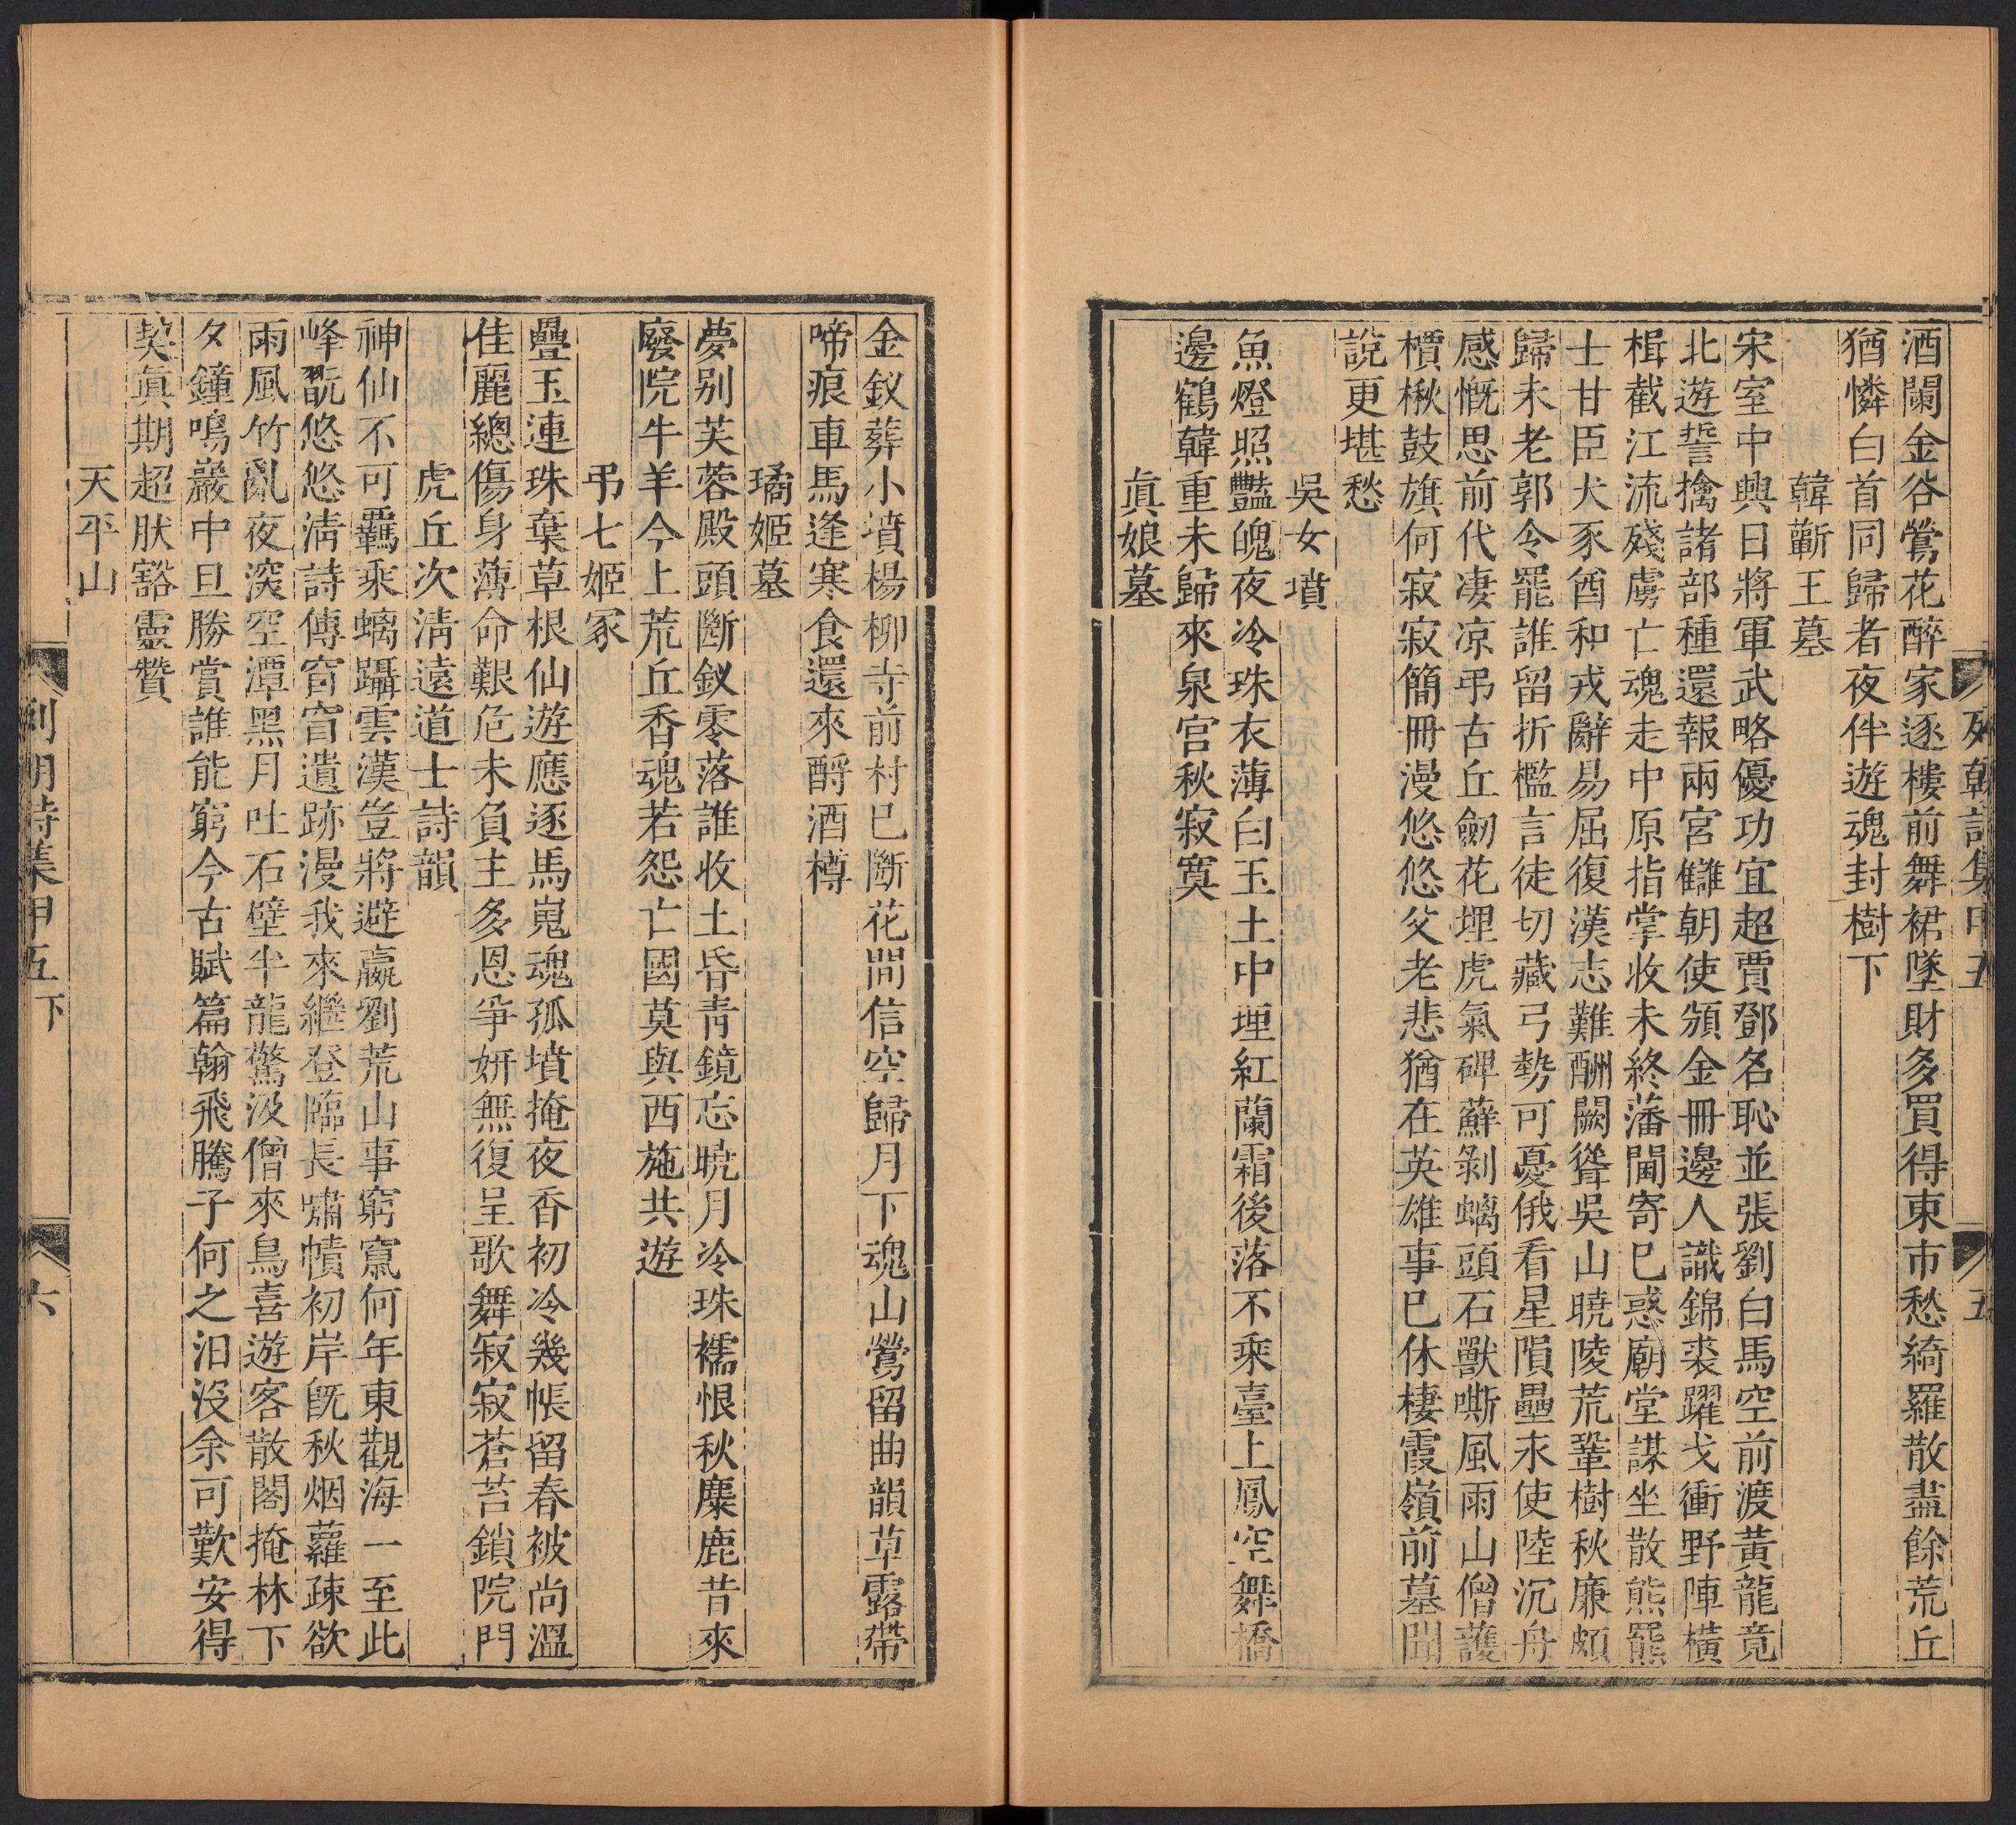 列朝詩集甲五
五
酒闌金谷鶯花醉家逐樓前舞裙墜財多買得東市愁綺羅散盡餘荒丘
猶憐白首同歸者夜伴遊魂封樹下
韓蘄王墓
宋室中興日將軍武略優功宜超賈鄧名恥並張劉白馬空前渡黃龍竟
北遊誓擒諸部種還報兩宮讎朝使頒金冊邊人識錦裘躍戈衝野陣橫
楫截江流殘虜亡魂走中原指掌收未終藩閫寄巳惑廟堂謀坐散熊羆
士甘臣犬豕酋和戎辭易屈復漢志難酬闕聳吳山曉陵荒鞏樹秋廉頗
歸未老郭令罷誰留折檻言徒切藏弓勢可憂俄看星隕壘永使陸沉舟
感慨思前代凄凉弔古丘劒花埋虎氣碑蘚剝螭頭石獸嘶風雨山僧護
檟楸鼓旗何寂寂簡冊漫悠悠父老悲猶在英雄事已休棲霞嶺前墓聞
說更堪愁
吳女墳
魚燈照豔魄夜冷珠衣薄白玉土中埋紅蘭霜後落不乘臺上鳳空舞橋
邊鶴韓重未歸來泉宮秋寂寞
眞娘墓
金釵葬小墳楊柳寺前村已斷花閒信空歸月下魂山鶯留曲韻草露帶
啼痕車馬逢寒食還來酹酒樽
璚姬墓
夢别芙蓉殿頭斷釵零落誰收土昏青鏡忘曉月冷珠襦恨秋麋鹿昔來
廢院牛羊今上荒丘香魂若怨亡國莫與西施共遊
弔七姬冢
疊玉連珠棄草根仙遊應逐馬嵬魂孤墳掩夜香初冷幾帳留春被尚溫
佳麗總傷身薄命艱危未負主多恩爭妍無復呈歌舞寂寂蒼苔鎖院門
虎丘次淸遠道士詩韻
神仙不可羈乘螭躡雲漢豈將避嬴劉荒山事窮竄何年東觀海一至此
峰翫悠悠淸詩傳窅窅遺跡漫我來繼登臨長嘯幘初岸旣秋烟蘿疎欲
雨風竹亂夜深空潭黑月吐石壁半龍驚汲僧來鳥喜遊客散閣掩林下
夕鐘鳴巖中旦勝賞誰能窮今古賦篇翰飛騰子何之汨沒余可歎安得
契眞期超肰豁靈贊
天平山
列朝詩集甲五下
六